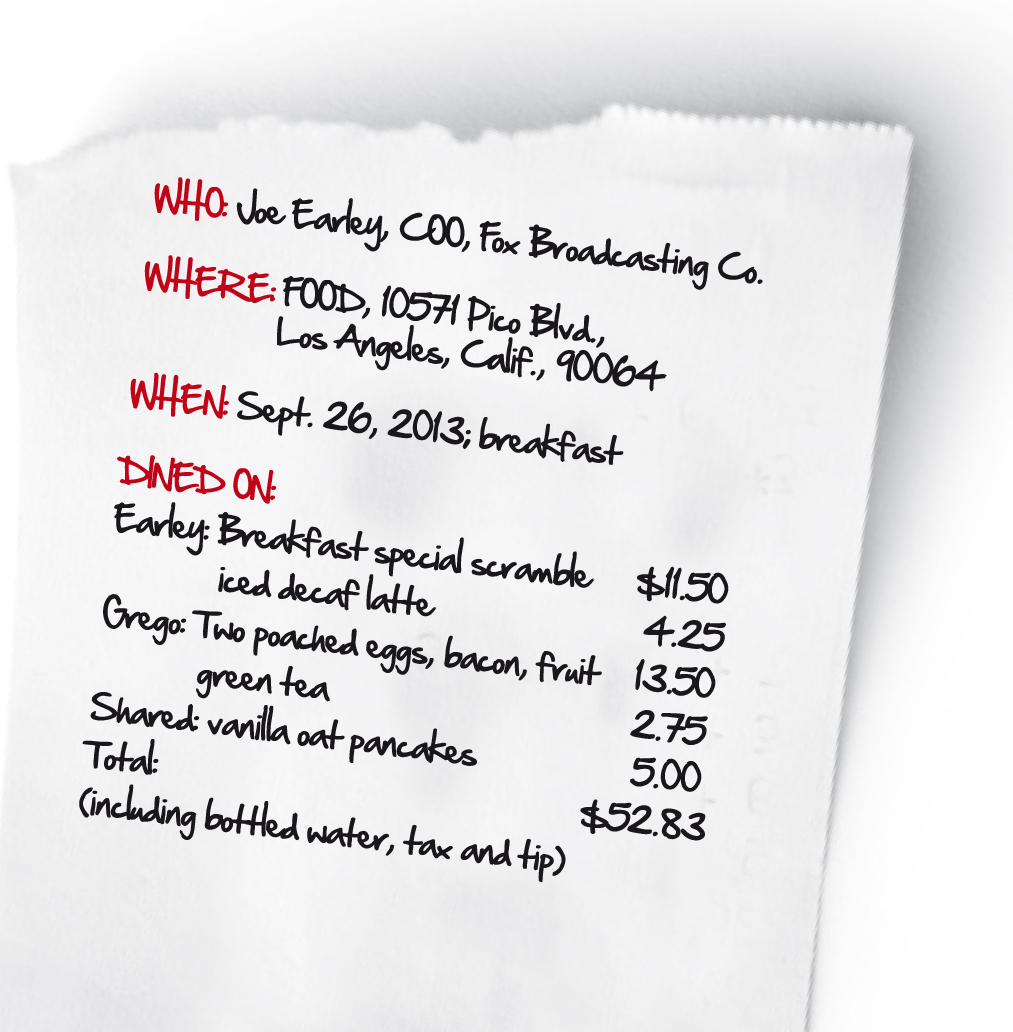 WHO: Joe Earley, COO, Fox Broadcasting Co.
WHERE: FOOD, 10571 Pico Blvd.,
Los Angeles, Calif., 90064
WHEN: Sept. 26, 2013; breakfast
DINED ON:
Earley: Breakfast special scramble $11.50
iced decaf latte 4.25
Grego: Two poached eggs, bacon, fruit 13.50
green tea 2.75
Shared: vanilla oat pancakes 5.00
Total: $52.83
(including bottled water, tax and tip)